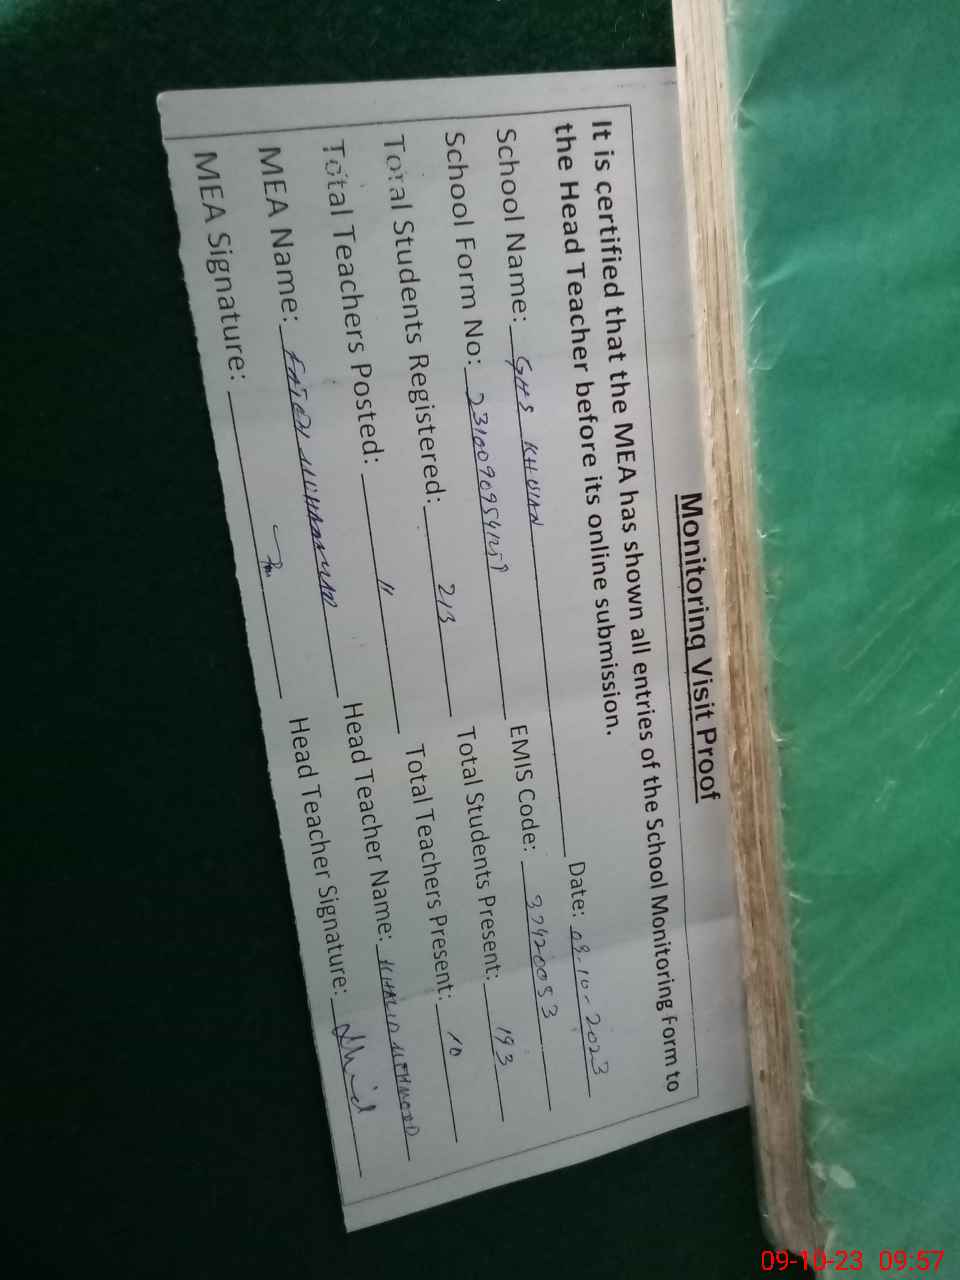 Monitoring Visit Proof
It is certified that the MEA has shown all entries of the School Monitoring Form to
the Head Teacher before its online submission.
School Name: GHS Date: 09-10-2023
School Form No: EMIS Code: 37420053
Total Students Registered: 213 Total Students Present: 193
Total Teachers Posted: 11 Total Teachers Present: 10
MEA Name: FATEH MUHAMMAD Head Teacher Name: KHALID MEHMOOD
MEA Signature: Head Teacher Signature:
09-10-23 09:57